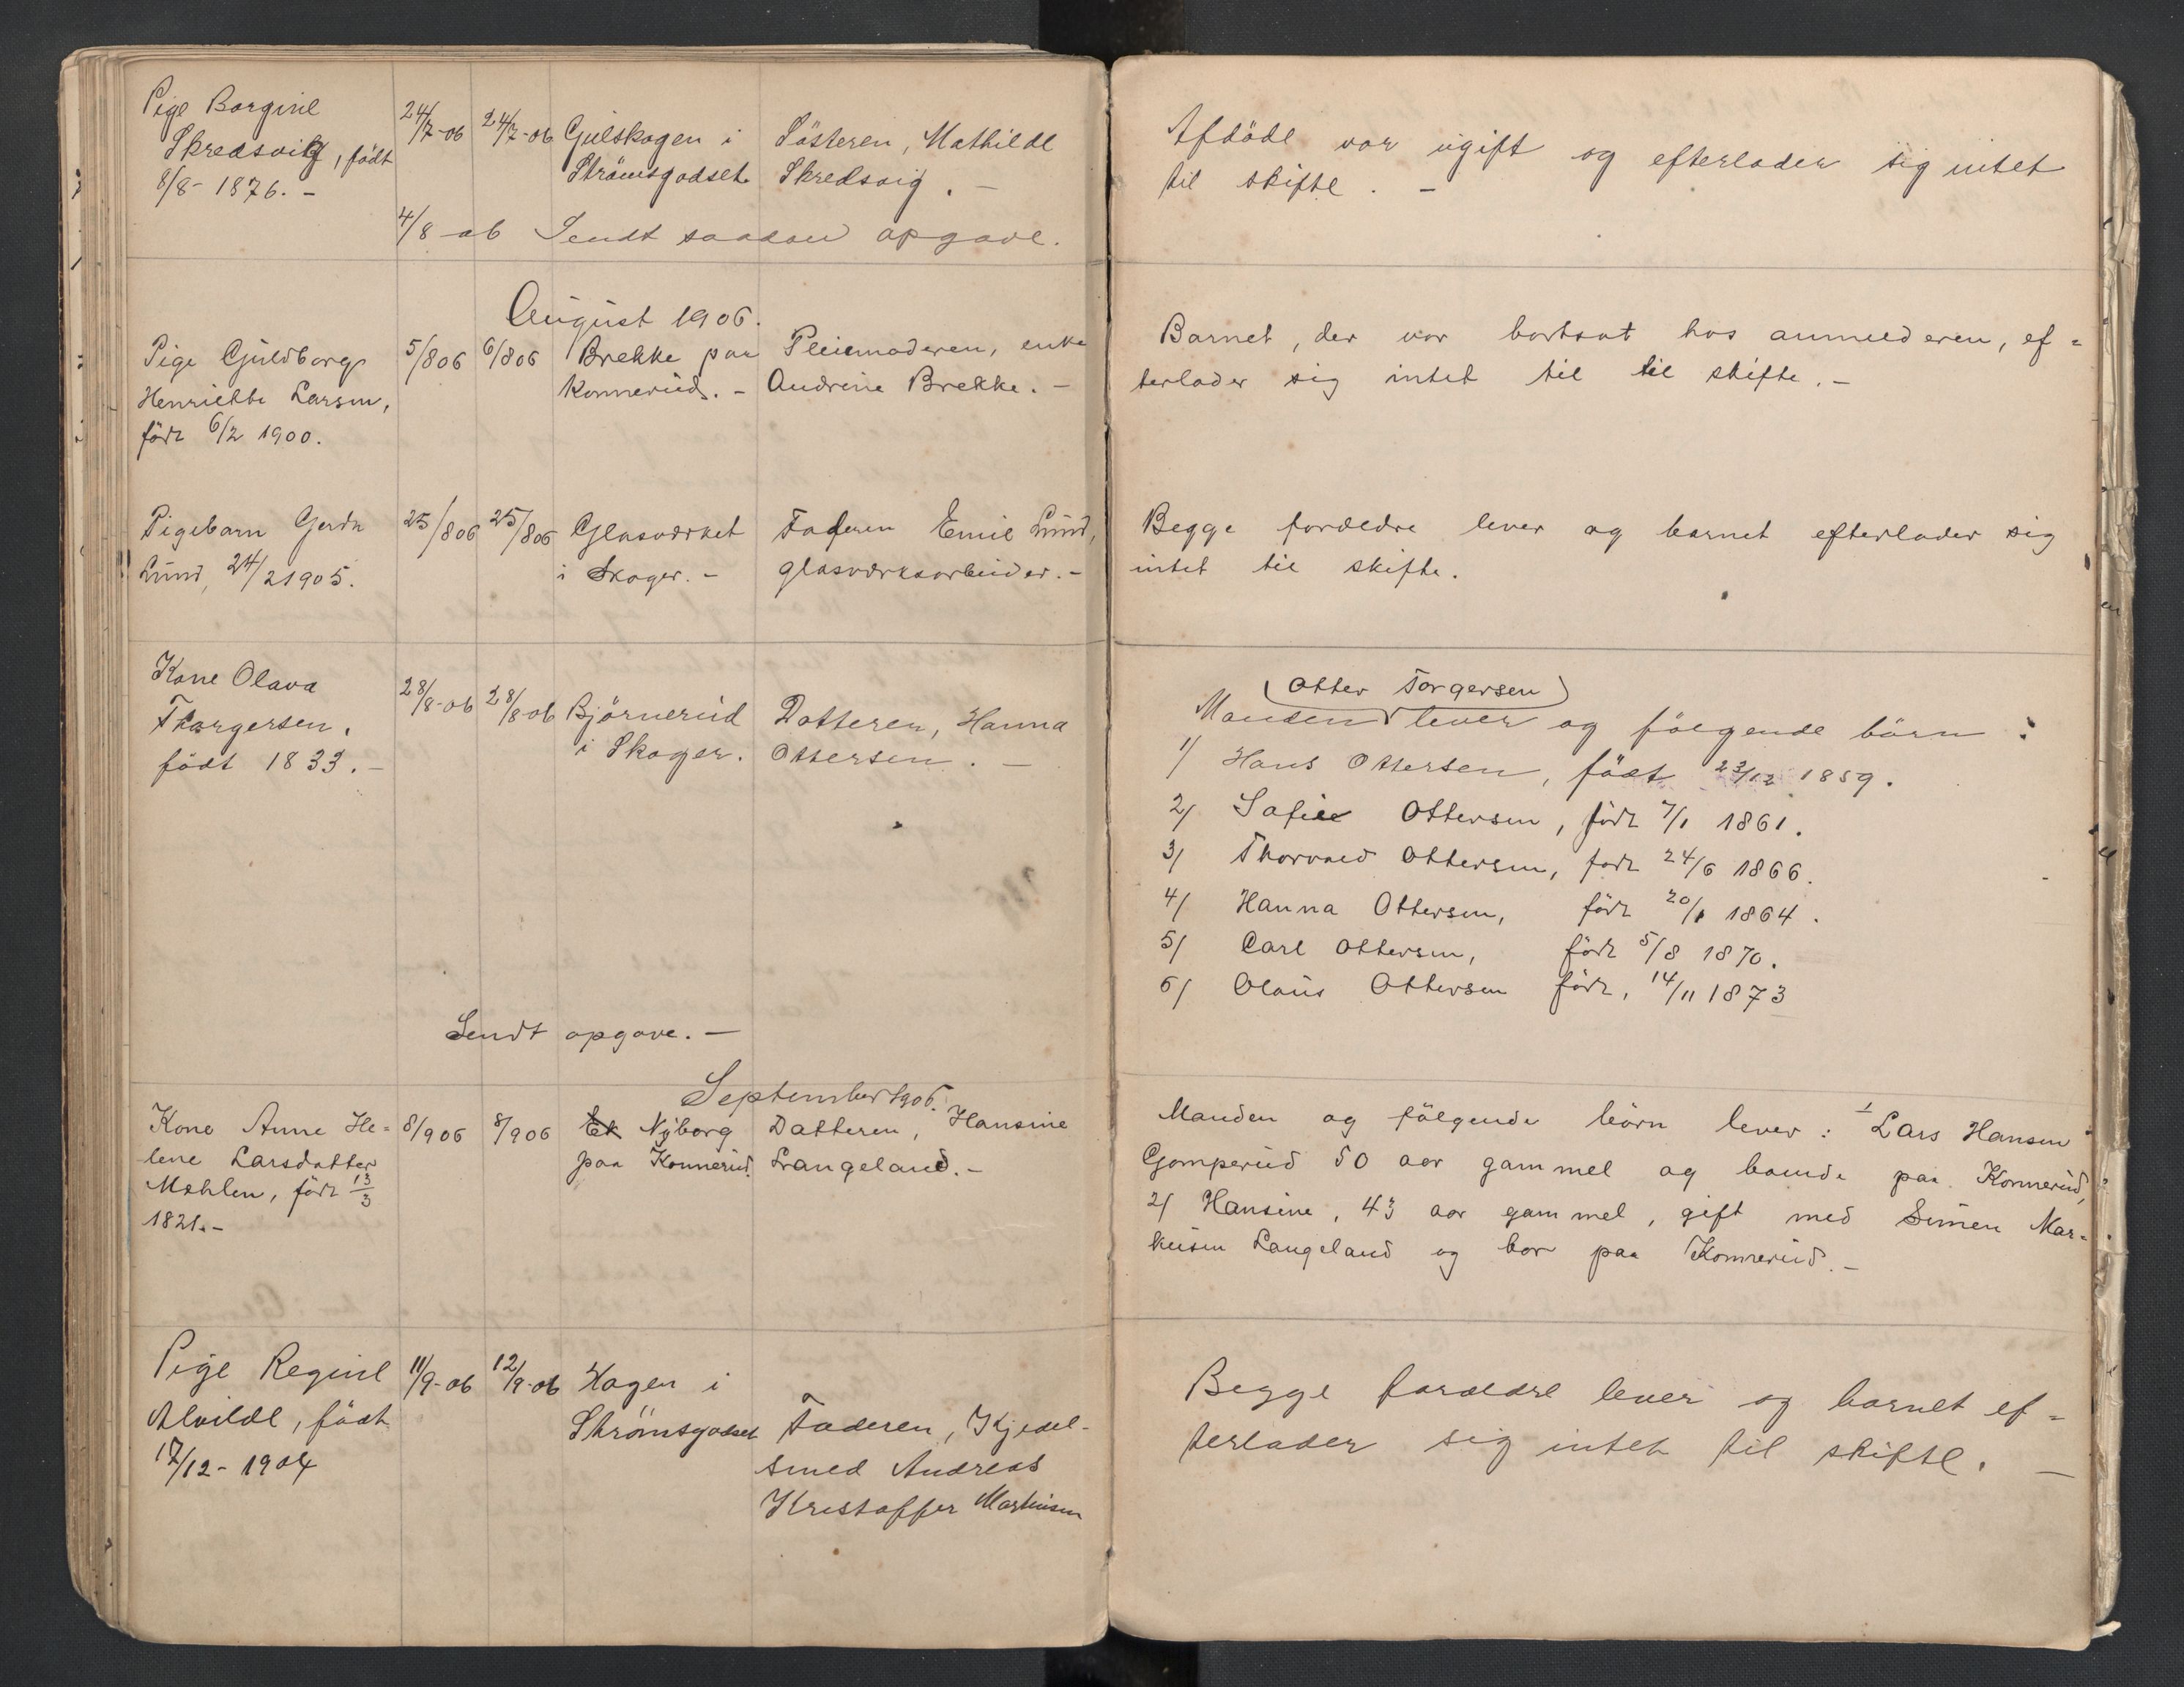 Pige Borgine
Skredsvig, født
8/8- 1876. -
24/7-06
24/7-06
Gulskogen i
Strømsgodset
Søsteren, Mathilde
Skredsvig. -
Afdøde var ugift og efterlader sig intet
til skifte. -
4/8-06 Sendt saadan opgave.
August 1906.
Pige Guldborg
Henriette Larsen,
født 6/2 1900.
5/8 06
6/8 06
Brekke paa
Konnerud. -
Pleiemoderen, enke
Andrine Brekke. -
Barnet, der var bortsat hos anmelderen, ef=
terlader sig intet til til skifte. -
Pigebarn Gerda
Lund, 24/2 1905.
25/8 06
25/8 06
Glasværket
i Skoger. -
Faderen Emil Lund,
glasværksarbeider. -
Begge forældre lever og barnet efterlader sig
intet til skifte.
Kone Olava
Thorgersen,
født 1833. -
28/8-06
28/8-06
Bjørnerud
i Skoger.
Datteren, Hanna
Ottersen. -
(Otter Torgersen)
Manden lever og følgende børn:
1/ Hans Ottersen, født 23/12 1859.
2/ Sofie Ottersen, født 7/1 1861.
3/ Thorvald Ottersen, født 24/6 1866.
4/ Hanna Ottersen, født 20/1 1864.
5/ Carl Ottersen, født 5/8 1870.
6/ Olaus Ottersen født, 14/11 1873
Sendt opgave. -
September 1906.
Kone Anne He=
lene Larsdatter
Møhlen, født 13/3
1821. -
8/9 06
8/9 06
Nyborg
paa Konnerud.
Datteren, Hansine
Langeland. -
Manden og følgende børn lever: 1 Lars Hansen
Gomperud 50 aar gammel og boende paa Konnerud,
2/ Hansine, 43 aar gammel, gift med Simen Mar=
kusen Langeland og bor paa Konnerud. -
Pige Regine
Alvilde, født
17/12- 1904
11/9-06
12/9-06
Hagen i
Strømsgodset
Faderen, Kjedel-
smed Andreas
Kristoffer Markusen
Begge forældre lever og barnet ef=
terlader sig intet til skifte. -